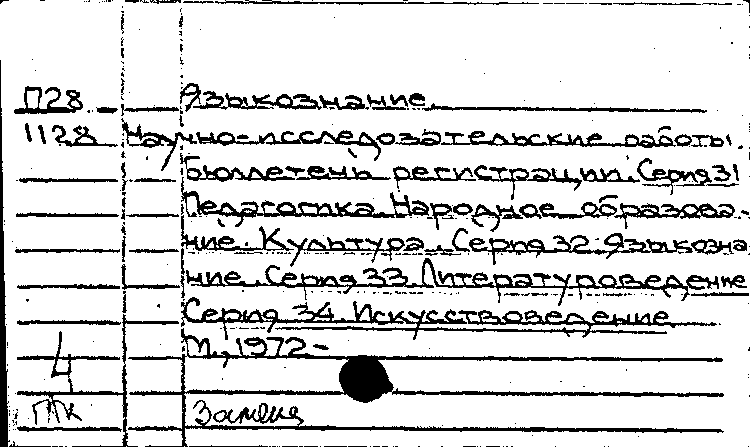 П28 Языкознание
1128 Научно-исследовательские работы.
Бюллетень регистрации. Серия 31
Педагогика. Народное образова-
ние. Культура. Серия 32. Языкозна
ние. Серия 33. Литературоведение
Серия 34. Искусствоведение
М., 1972-
4
ГАК Замена